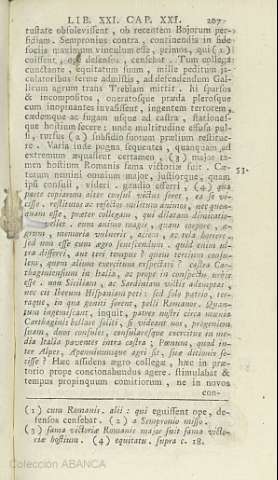 LIB. XXI. CAP. XXI. 207
tustate obsolevissent, ob recentem Bojorum per-
fidiam. Sempronius contra, continendis in fide
sociis maximum vinculum esse, primos, qui (1)
coissent, ope defensos, censebat. Tum collega
cunctante, equitatum suum, mille peditum ja-
culatoribus ferme admistis, ad defendendum Gal-
licum agrum trans Trebiam mittit. hi sparsos
& incompositos, oneratosque præda plerosque
cum inopinantes invasissent, ingentem terrorem,
cædemque ac fugam usque ad castra, stationes-
que hostium fecere: unde multitudine effusa pul-
si, rursus (2) subsidio suorum prælium restitue-
re. Varia inde pugna sequentes, quanquam ad
extremum æquassent certamen, (3) major ta-
men hostium Romanis fama victoriæ fuit. Ce-
terum nemini omnium major, justiorque, quam 53.
ipsi consuli, videri. gaudio efferri, (4) qua
parte copiarum alter consul victus foret, ea se vi-
cisse. restitutos ac refectos militibus animos, nec quem-
quam esse, præter collegam, qui dilatam dimicatio-
vellet. eum animo magis, quam corpore, æ-
grum, memoria vulneris, aciem, ac tela horrere.
sed non esse cum ægro senescendum. quid enim ul-
tra differri, aut teri tempus? quem tertium consu-
lem, quem alium exercitum exspectari? castra Car-
thaginiensium in Italia, ac prope in conspectu urbis
esse. non Siciliam, ac Sardiniam victis ademptas,
nec cis Iberum Hispaniam peti: sed solo patrio, ter-
raque, in qua geniti forent, pelli Romanos. Quan-
tum ingemiscant, inquit, patres nostri circa mœnia
Carthaginis bellare soliti, si videant nos, progeniem
suam, duos consules, consularesque exercitus in me-
dia Italia paventes intra castra; Pœnum, quod in-
ter Alpes, Apenninumque agri sit, suæ ditionis fe-
cisse? Hæc assidens ægro collegæ, hæc in præ-
torio prope concionabundus agere. stimulabat &
tempus propinquum comitiorum, ne in novos
con-
(1) cum Romanis. alii: qui eguissent ope, de-
fensos censebat. (2) a Sempronio misso.
(3) fama victoriæ Romanis major fuit fama victo-
riæ hostium. (4) equitatu. supra c. 18.
Colección ABANCA